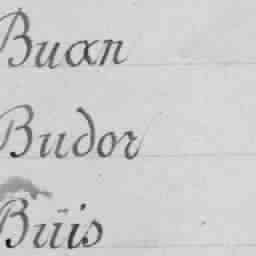 Buan
Budor
Büis